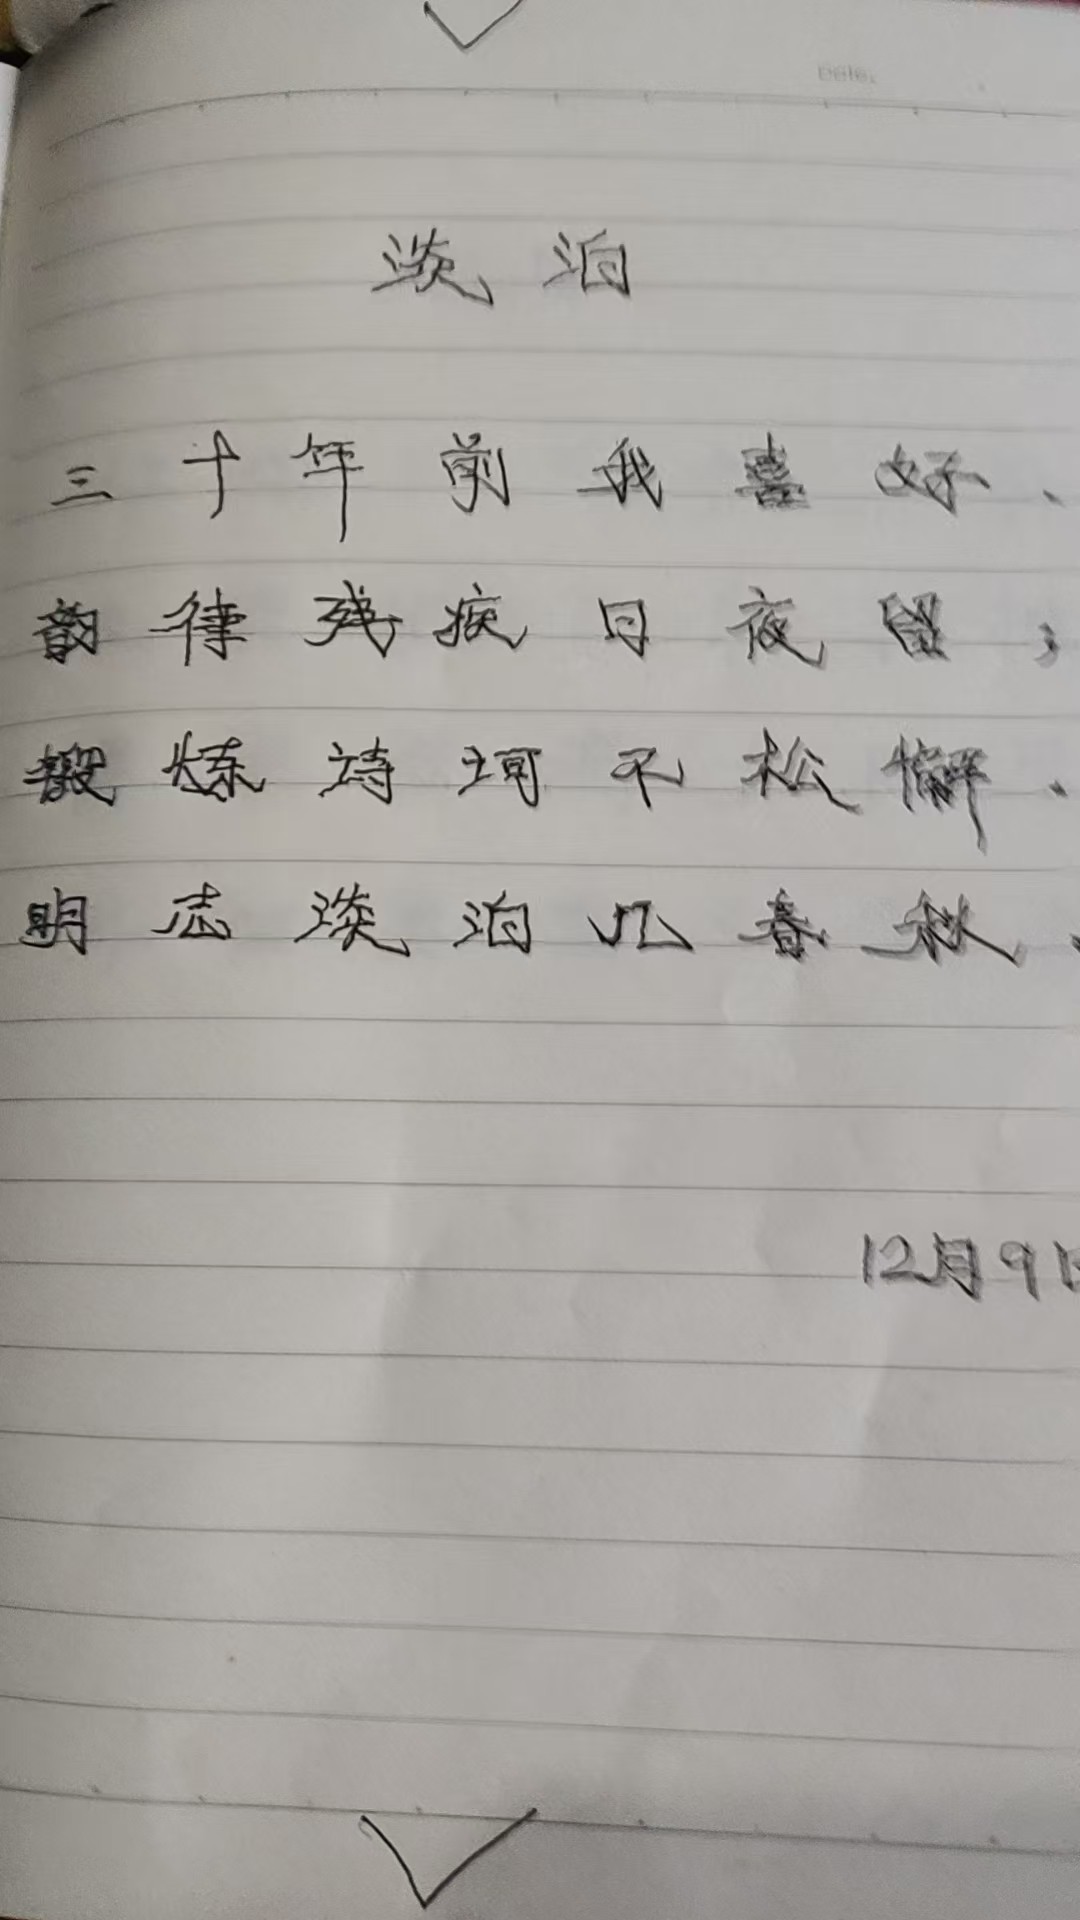 淡泊
三十年前我喜好、
韵律残疾日夜留；
锻炼诗词不松懈、
明志淡泊几春秋、
12月9日